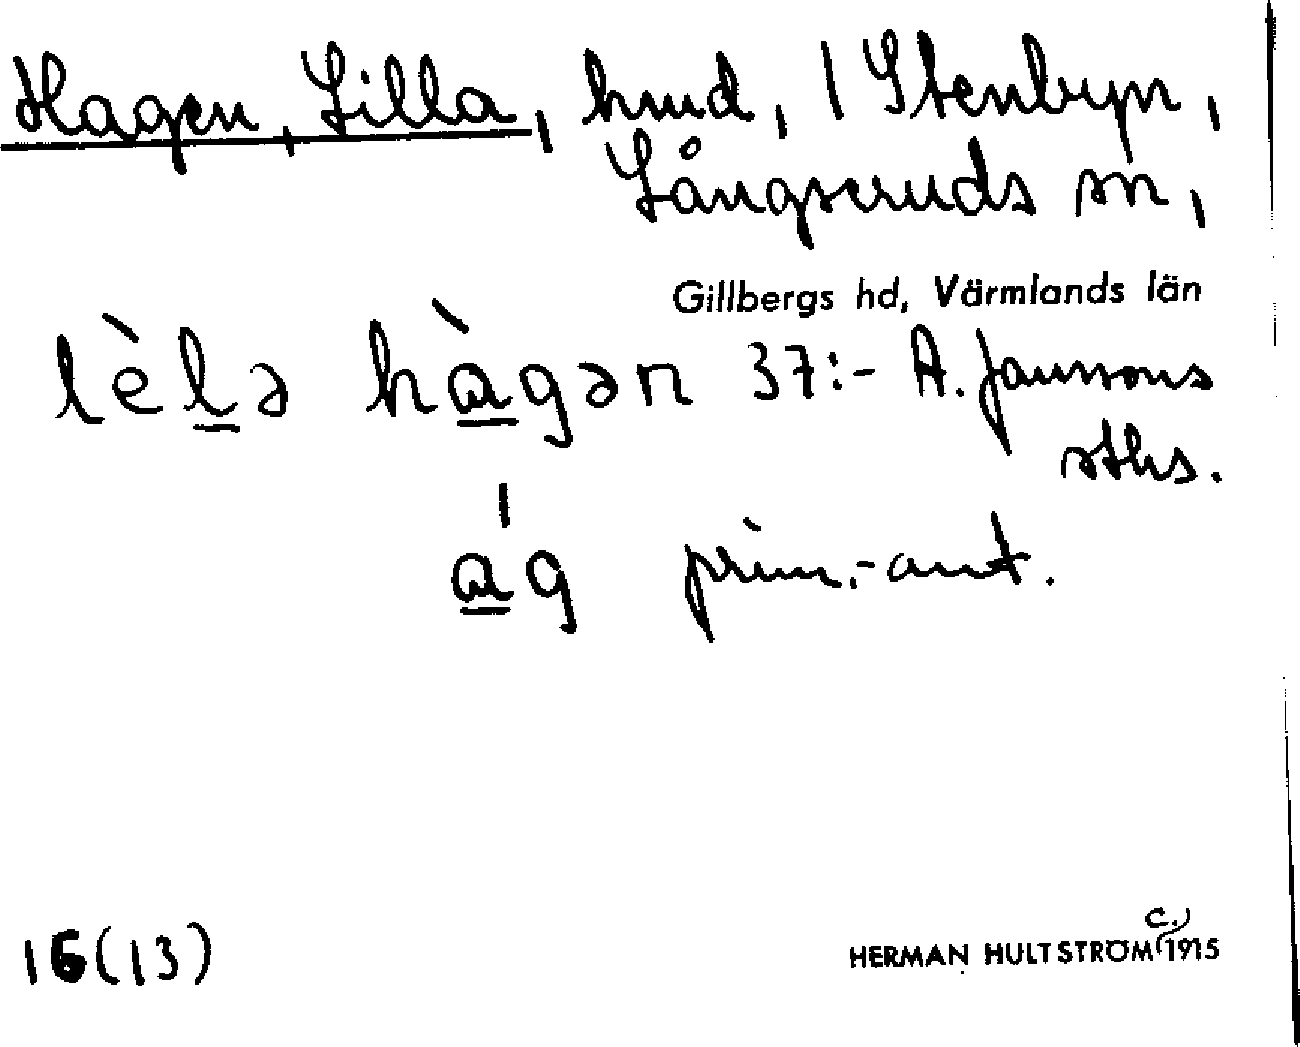 Hagen, Lilla, hmd, 1 Stenbyn,
Långseruds sn,
Gillbergs hd, Värmlands län
lèl̲ə hàgən 37:- A. Janssons
sths.
ág prim.-ant.
16(13)
HERMAN HULTSTRÖM (c.) 1915